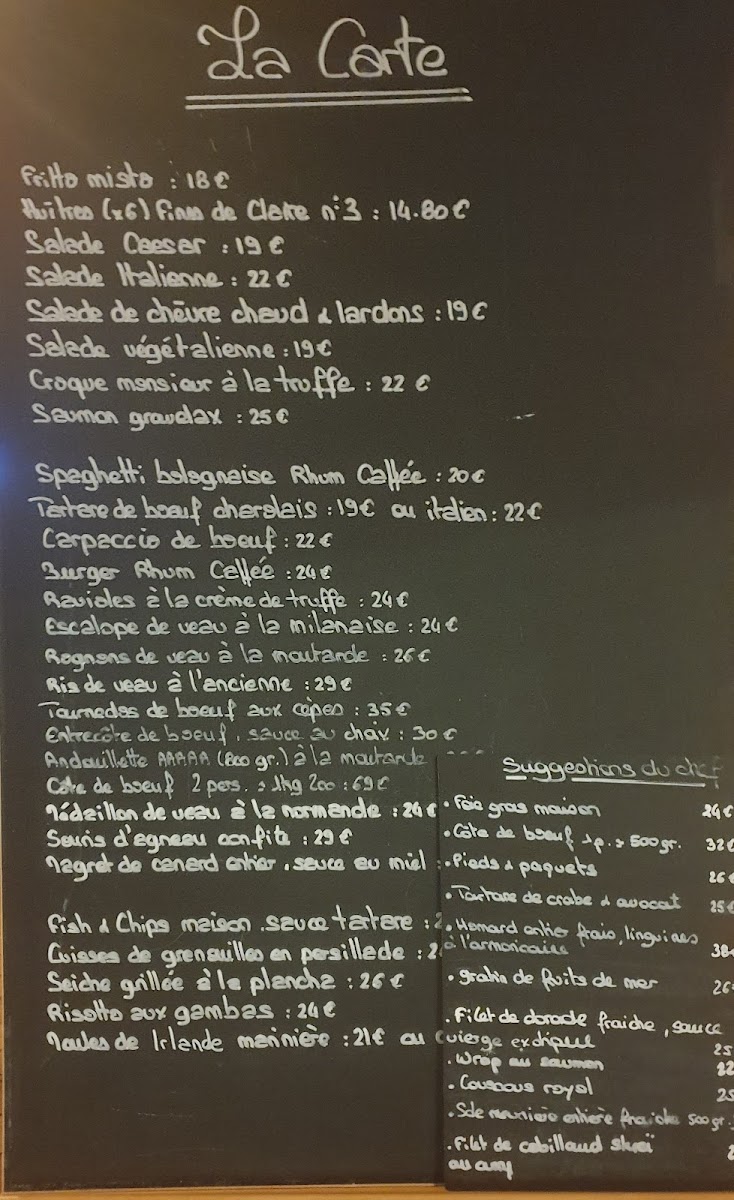 La Carte
Fritto misto : 18 €
Huîtres (x6) Fines de Claire n°3 : 14.80 €
Salade Caesar : 19 €
Salade Italienne : 22 €
Salade de chèvre chaud & lardons : 19 €
Salade végétalienne : 19 €
Croque monsieur à la truffe : 22 €
Saumon gravelax : 25 €
Spaghetti bolognaise Rhum Caffée : 20 €
Tartare de boeuf charolais : 19 € ou italien : 22 €
Carpaccio de boeuf : 22 €
Burger Rhum Caffée : 24 €
Ravioles à la crème de truffe : 24 €
Escalope de veau à la milanaise : 24 €
Rognons de veau à la moutarde : 26 €
Ris de veau à l'ancienne : 29 €
Tournedos de boeuf aux cèpes : 35 €
Entrecôte de boeuf, sauce au choix : 30 €
Andouillette AAAAA (800 gr.) à la moutarde
Côte de boeuf 2 pers. > 1kg 200 : 69 €
Médaillon de veau à la normande : 24 €
Souris d'agneau confite : 29 €
Magret de canard entier, sauce au miel :
Fish & Chips maison, sauce tartare : 2
Cuisses de grenouilles en persillade : 2
Seiche grillée à la plancha : 26 €
Risotto aux gambas : 24 €
Moules de Irlande marinière : 21 € ou
Suggestions du chef
• Foie gras maison 24 €
• Côte de boeuf 1p. > 500 gr. 32 €
• Pieds & paquets 26 €
• Tartare de crabe & avocat 25 €
• Homard entier frais, linguines
à l'armoricaine 38
• gratin de fruits de mer 26
• Filet de dorade fraiche, sauce
vierge exotique 25
• Wrap au saumon 22
• Couscous royal 25
• Sole meunière entière fraiche 500 gr.
• Filet de cabillaud skreï
au curry 2